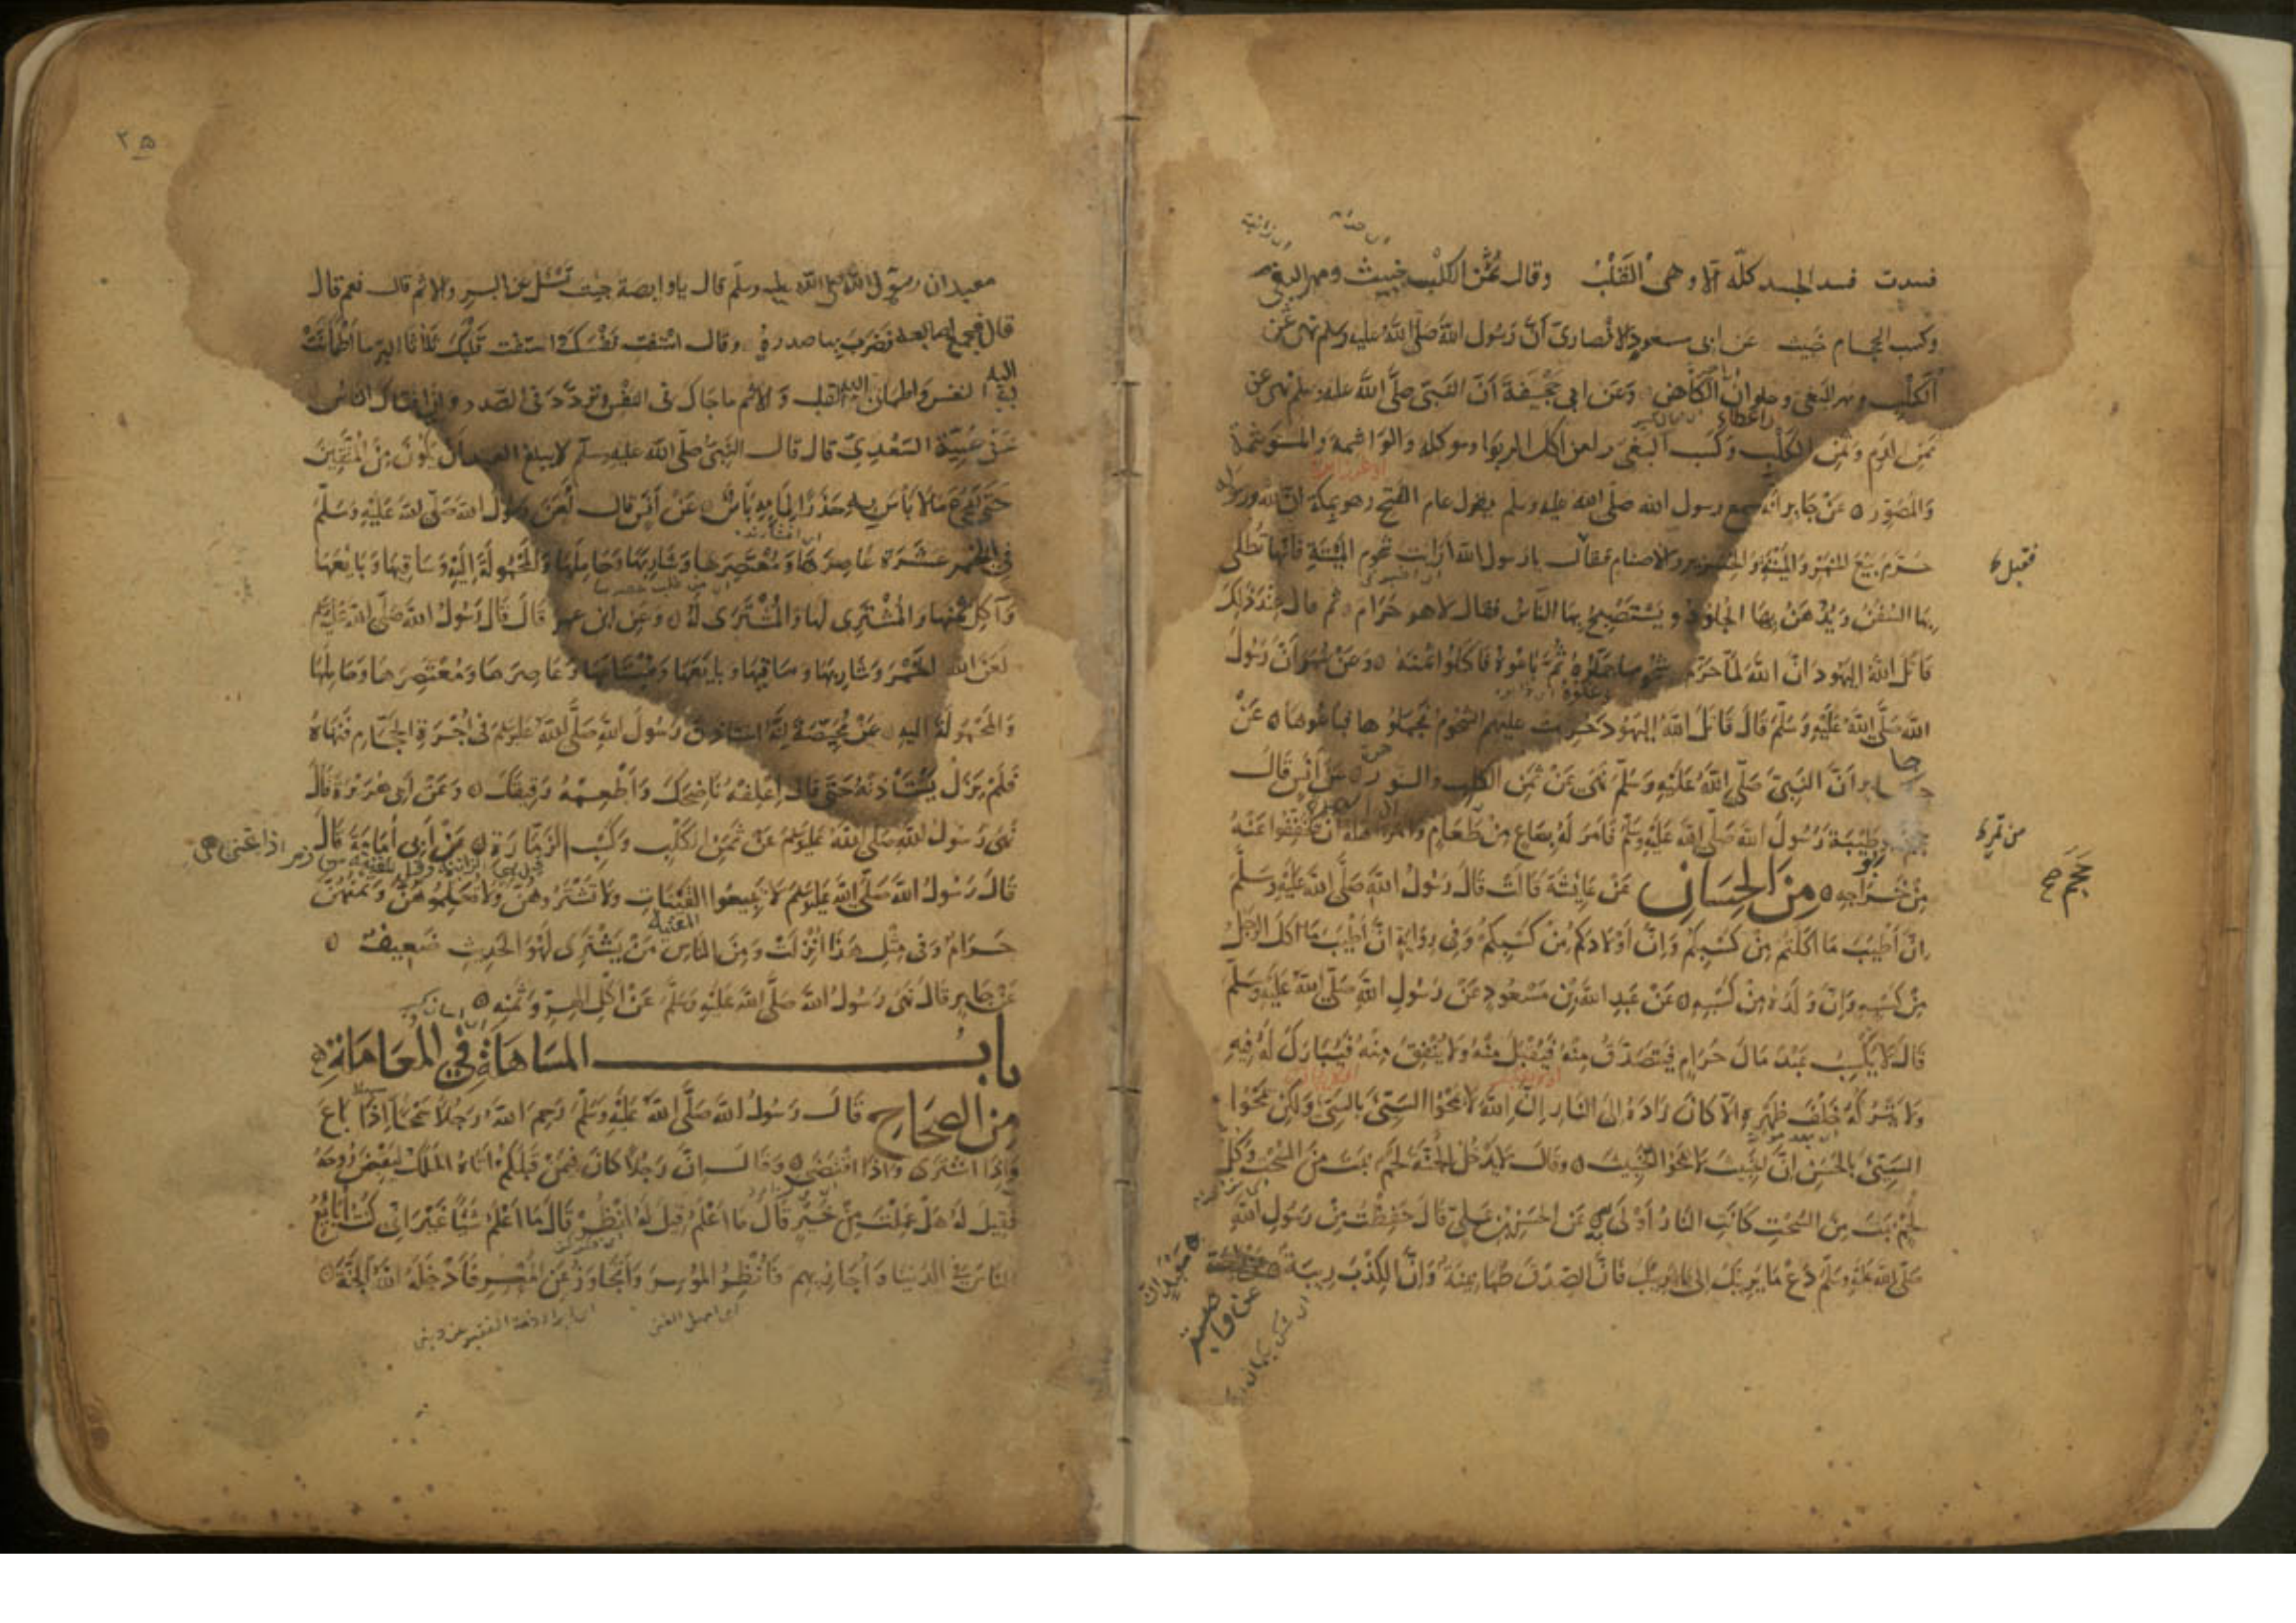 فسدت فسد الجسد كلّه ألا وهى القَلْبُ وقال ثَمَنُ الكلْبِ خبيث ومهر البغى
وكسب الحجام خَبيث عَن ابى مسعودٍ الانصارىّ أَنَّ رَسُول اللّهَ صَلّى اللّهُ عليه وسلم نهى عَن
الكلْبِ ومَهر البَغى وحلوانُ الكَاهن وَعَن ابى جُحَيفَةَ أَنَّ النَّبىّ صَلَّى اللَّه عليه وسلم نهى عن
ثمن الدم وثَمن الكَلْبِ وكَسب البَغى ولعن آكل الربوا وموكله والوَاشمة والمستوشمةَ
وَالمُصَوِّر عَن جَابِر أنه سمع رسول الله صلّى الله عليه وسلم يقول عام الفَتحِ وهو بمكة انّ اللّه ورسوله
حَرّم بَيْعَ الخَمْر وَالمَيْتَة وَالخنزير والاصنام فقال يا رسول اللّه أرَأيتَ شحوم المَيْتَةِ فانّها تُطْلى
بِهَا السّفُنُ وَيُدْهَنُ بِهَا الجُلُودُ ويَسْتَصْبِحُ بِهَا النَّاسُ فقال لا هو حَرَام ثم قال عِنْدَ ذلِكَ
قَاتلَ اللّهُ اليَهُود انّ اللّهَ لمّا حَرَّم شحومها جَمَلُوهُ ثُمَّ بَاعُوهُ فَاكَلُوا ثمنَهُ وَعَنْ عُمَرَ أَنّ رَسُولَ
اللّه صَلَّى اللّهُ عَلَيْهِ وَسَلَّمَ قَالَ قَاتَلَ اللّهُ اليَهُودَ حُرِّمت عليهم الشحُوم فَجَمَلوها فبَاعُوهَا عَنْ
جابر أَنَّ النَّبِىّ صَلّى اللّهُ عَلَيْهِ وَسَلَّمَ نَهَى عَنْ ثَمَن الكلب والسنور عَن أَنَس قَالَ
حَجَمَ ابو طَيْبَة رَسُولَ اللّهَ صَلّى اللّهُ عَلَيْهِ وَسَلّمَ فَأمَرَ لَهُ بِصَاعٍ مِنْ طَعَامٍ وَأَمَرَ اهله أَنْ يُخَفِّفُوا عَنْهُ
مِنْ خَرَاجِه مِنَ الحِسَان عَنْ عَائِشَة قَالَتْ قَالَ رَسُولُ اللّه صَلَّى اللّهُ عَلَيْهِ وَسَلَّمَ
انَّ أَطْيَبَ مَا اكَلْتُم مِنْ كَسْبِكُم وَإنَّ أَوْلَادكُمْ مِنْ كَسْبِكُمْ وَفى رِوَايَةٍ انَّ أَطْيَبَ مَا اكَلَ الرجُلُ
مِنْ كَسْبِه وَإنَّ وَلَدَهُ مِنْ كَسْبِه عَنْ عَبدِ اللّه بْن مَسْعُودٍ عَنْ رَسُولِ اللّهِ صَلّى اللّهُ عَلَيْهِ وَسَلَّمَ
قَالَ لا يَكْسِبُ عَبْدٌ مَالَ حَرَامٍ فَيَتَصَدَّقُ مِنْهُ فَيُقْبَلُ مِنْهُ وَلا يُنْفِقُ مِنْهُ فَيُبَارَكُ لَهُ فِيهِ
وَلا يَتْرُكُهُ خَلْفَ ظَهْرِهِ إلّا كَانَ زَادَهُ إلَى النَّارِ إنَّ اللّهَ لا يَمْحُوا السَّيّئَ بِالسَّيّئِ وَلكِنْ يَمْحُوا
السَّيّئَ بِالحَسَنِ انَّ الخَبيثَ لا يَمْحُو الخَبيثَ وقَالَ لا يَدْخُلُ الجَنّةَ لَحْمٌ نبَتَ مِنَ السُّحْتِ وَكُلُّ
لَحْمٍ نَبَتَ مِنَ السُّحْتِ كَانَتِ النَّارُ أَوْلَى بِهِ عَنِ الحَسَنِ بْنِ عَلِىّ قَالَ حَفِظْتُ مِنْ رَسُولِ اللّهِ
صَلّى اللّهُ عَلَيْهِ وَسَلّمَ دَعْ مَا يَرِيبُكَ إلَى مَا لا يَرِيبُكَ فَانَّ الصِّدْقَ طُمَانِينَةٌ وَانَّ الكِذْبَ رِيبَةٌ
عن وابصة بن
فقيل
حَجَم صح
معبد ان رسُول اللّهَ صلى اللّه عليه وسلّم قال يا وابصة جئتَ تَسْئَلُ عن البِرِ والاثم قلت نعم قال
قال فجمع اصابعه فضَرَبَ بها صدرهُ وقال اسْتَفْتِ نَفْسَكَ استفت قَلْبَكَ ثَلاثًا البِرّ ما اطْمَأَنَّتْ
اليه النفس وَاطمأن اليه القلب وَالاثم ما حَاك فى النَفْس وتردّدَ فى الصَّدر وان افتاك الناسُ
عَنْ عَطِيَّةَ السَّعْدِىّ قال قال النَّبِىّ صَلّى اللّه عليه وسلم لا يبلغ العبد أن يَكُونَ مِنَ المُتَّقِينَ
حَتّى يَدَعَ مَا لا بَأسَ بِهِ حَذَرًا لِمَا بِهِ بَأسٌ عَنْ أَنَس قال لَعَنَ رَسُولُ اللّه صَلّى اللّهُ عَلَيْهِ وَسَلَّمَ
فِى الخَمْرِ عَشَرَةً عَاصِرَهَا وَمُعْتَصِرَهَا وَشَارِبَهَا وَحَامِلَهَا وَالمَحْمُولَةَ إلَيْهِ وَسَاقِيهَا وَبَايعَهَا
وَآكِلَ ثَمَنِهَا وَالمُشْتَرِى لَهَا وَالمُشْتَرَى لَهُ وَعَنِ ابْنِ عمر قَالَ قَالَ رَسُولُ اللّه صَلّى اللّهُ عَلَيْهِ وَسَلم
لَعَنَ اللّه الخَمْرَ وَشَارِبَهَا وَسَاقِيهَا وبايعَهَا وَمُبْتَاعَهَا وَعَاصِرَهَا وَمُعْتَصِرَهَا وَحَامِلَهَا
وَالمَحْمُولَةَ اليهِ عَنْ مُحَيِّصَةَ انَّهُ استأذنَ رَسُولَ اللّه صَلَّى اللّهُ عَليه وسلم فى أُجْرَةِ الحَجّامِ فَنَهَاهُ
فَلَمْ يَزَلْ يَسْتَأْذِنُهُ حَتّى قَالَ اعْلِفْهُ نَاضِحَكَ وَاَطْعِمْهُ رَقِيقَكَ وَعَنْ اَبِى هُرَيْرَةَ قَالَ
نَهَى رَسُولُ اللّهِ صَلّى اللّهُ عليه وسلم عَنْ ثَمَنِ الكَلْبِ وكَسْبِ الزَّمَّارَةِ عَنْ أَبِى أُمَامَةَ قَالَ
قَالَ رَسُولُ اللّهِ صَلَّى اللّهُ عليه وسلم لا تَبِيعُوا القَيْنَاتِ وَلا تَشْتَرُوهُنَّ وَلا تُعَلِّمُوهُنَّ وَثَمَنُهُنَّ
حَرَامٌ وَفى مِثْلِ هَذَا أُنْزِلَتْ وَمِنَ النَّاسِ مَنْ يَشْتَرِى لَهْوَ الحَدِيثِ ضَعِيفٌ
عَنْ جَابِرٍ قَالَ نَهَى رَسُولُ اللّهِ صَلَّى اللّهُ عَلَيْهِ وَسَلَّمَ عَنْ اكْلِ الهِرِّ وَثَمَنِهِ
باب المُسَاهَلَةِ فِى المُعَامَلَةِ
مِنَ الصِّحَاحِ قَالَ رَسُولُ اللّهِ صَلَّى اللّهُ عَلَيْهِ وَسَلَّمَ رَحِمَ اللّهُ رَجُلًا سَمْحًا إذَا بَاعَ
وَاِذَا اشْتَرَى وَاِذَا اقْتَضَى وقَالَ إنَّ رَجُلًا كَانَ فِيمَنْ قَبْلَكُمْ أَتَاهُ المَلَكُ لِيَقْبِضَ رُوحَهُ
فَقِيلَ لَهُ هَلْ عَمِلْتَ مِنْ خَيْرٍ قَالَ مَا أَعْلَمُ قِيلَ لَهُ انْظُرْ قَالَ مَا أَعْلَمُ شَيْئًا غَيْرَ اَنِّى كُنْتُ أُبَايِعُ
النَّاسَ فى الدُّنيَا وَأُجَازِيهِم فَأُنْظِرُ المُوسِرَ وَأَتَجَاوَزُ عَنِ المُعْسِرِ فَأَدْخَلَهُ اللّهُ الجَنَّةَ